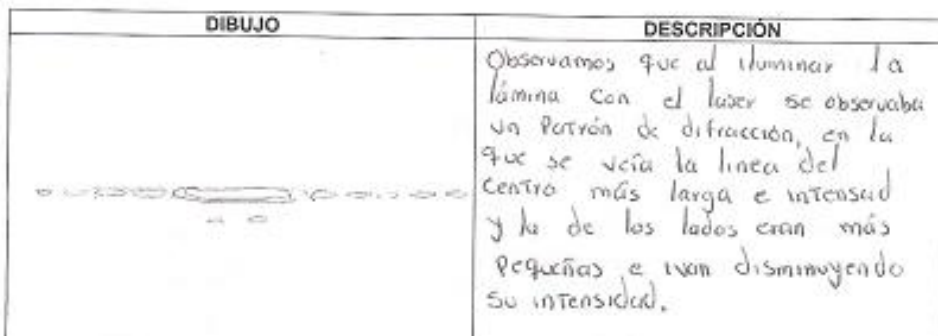 DIBUJO
DESCRIPCIÓN
Observamos que al iluminar la
lámina con el laser se observaba
un Patrón de difracción, en la
que se veía la linea del
centro más larga e intensad
y la de los lados eran más
pequeñas e ivan disminuyendo
su intensidad.